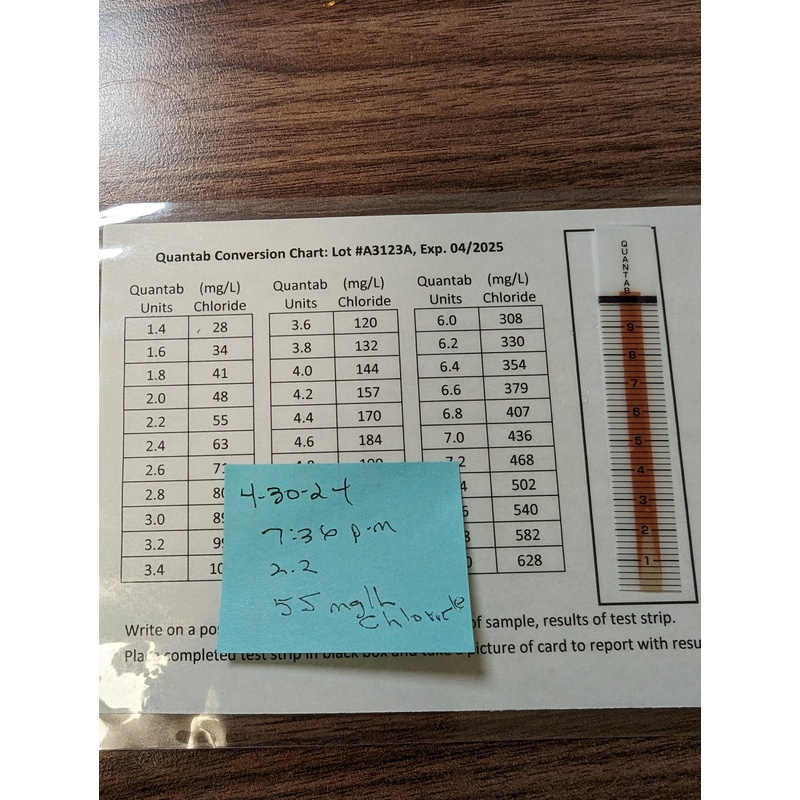 Quantab Conversion Chart: Lot #A3123A, Exp. 04/2025
Quantab Units (mg/L) Chloride
1.4 28
1.6 34
1.8 41
2.0 48
2.2 55
2.4 63
2.6 71
2.8
3.0
3.2
3.4
Quantab Units (mg/L) Chloride
3.6 120
3.8 132
4.0 144
4.2 157
4.4 170
4.6 184
Quantab Units (mg/L) Chloride
6.0 308
6.2 330
6.4 354
6.6 379
6.8 407
7.0 436
7.2 468
502
540
582
628
QUANTAB
9
8
7
6
5
4
3
2
1
4-30-24
7:36 p.m
2.2
55 mg/L
Chloride
Write on a pos of sample, results of test strip.
Place completed test strip in black box and take a picture of card to report with resu